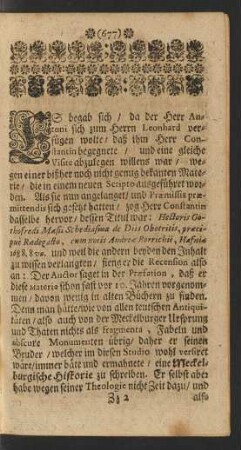 (677)
ES begab sich / da der Herr An-
toni sich zum Herrn Leonhard ver-
fügen wolte / daß ihm Herr Con-
stantin begegnete / und eine gleiche
Visite abzulegen willens war / we-
gen einer bißher noch nicht genug bekanten Mate-
rie / die in einem neuen Scripto ausgeführet wor-
den. Als sie nun angelanget / und Præmissis præ-
mittendis sich gesetzt hatten / zog Herr Constantin
dasselbe hervor / dessen Titul war: Hectoris Go-
thofredi Masii Schediasma de Diis Obotritis, præci-
pue Radegasto, cum notis Andreæ Borrichii, Hafniæ
1688. 8vo. und weil die andern beyden den Inhalt
zu wissen verlangten / fieng er die Recension also
an: Der Auctor saget in der Præfation, daß er
diese Materie schon fast vor 10. Jahren vorgenom-
men / davon wenig in alten Büchern zu finden.
Denn man hätte wie von allen teutschen Antiqui-
täten / also auch von der Meckelburger Ursprung
und Thaten nichts als fragmenta, Fabeln und
obscure Monumenten übrig / daher er seinen
Bruder / welcher in diesen Studio wohl versiret
wäre / immer bäte und ermahnete / eine Meckel-
burgische Historie zu schreiben. Er selbst aber
habe wegen seiner Theologie nicht Zeit dazu / und
Zz 2 also